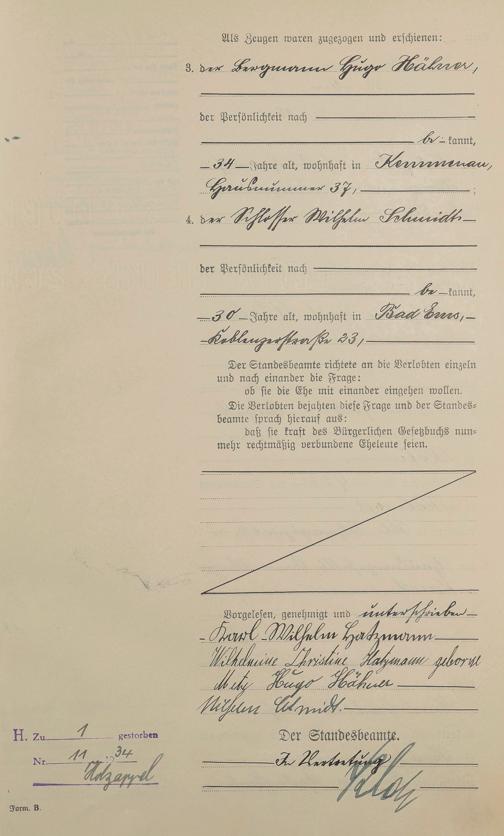 Als Zeugen waren zugezogen und erschienen:
3. der Bergmann Hugo Hähner,
der Persönlichkeit nach
be-kannt,
34 Jahre alt, wohnhaft in Kemmenau,
Hausnummer 37,
4. der Schlosser Wilhelm Schmidt
der Persönlichkeit nach
be-kannt,
30 Jahre alt, wohnhaft in Bad Ems,
Koblenzerstraße 23,
Der Standesbeamte richtete an die Verlobten einzeln
und nach einander die Frage:
ob sie die Ehe mit einander eingehen wollen.
Die Verlobten bejahten diese Frage und der Standes-
beamte sprach hierauf aus:
daß sie kraft des Bürgerlichen Gesetzbuchs nun-
mehr rechtmäßig verbundene Eheleute seien.
Vorgelesen, genehmigt und unterschrieben
Karl Wilhelm Hatzmann
Wilhelmine Christine Hatzmann geborene
Metz Hugo Hähner
Wilhelm Schmidt.
Der Standesbeamte.
In Vertretung
H. Zu 1 gestorben
Nr 11 34
Holzappel
Form. B.